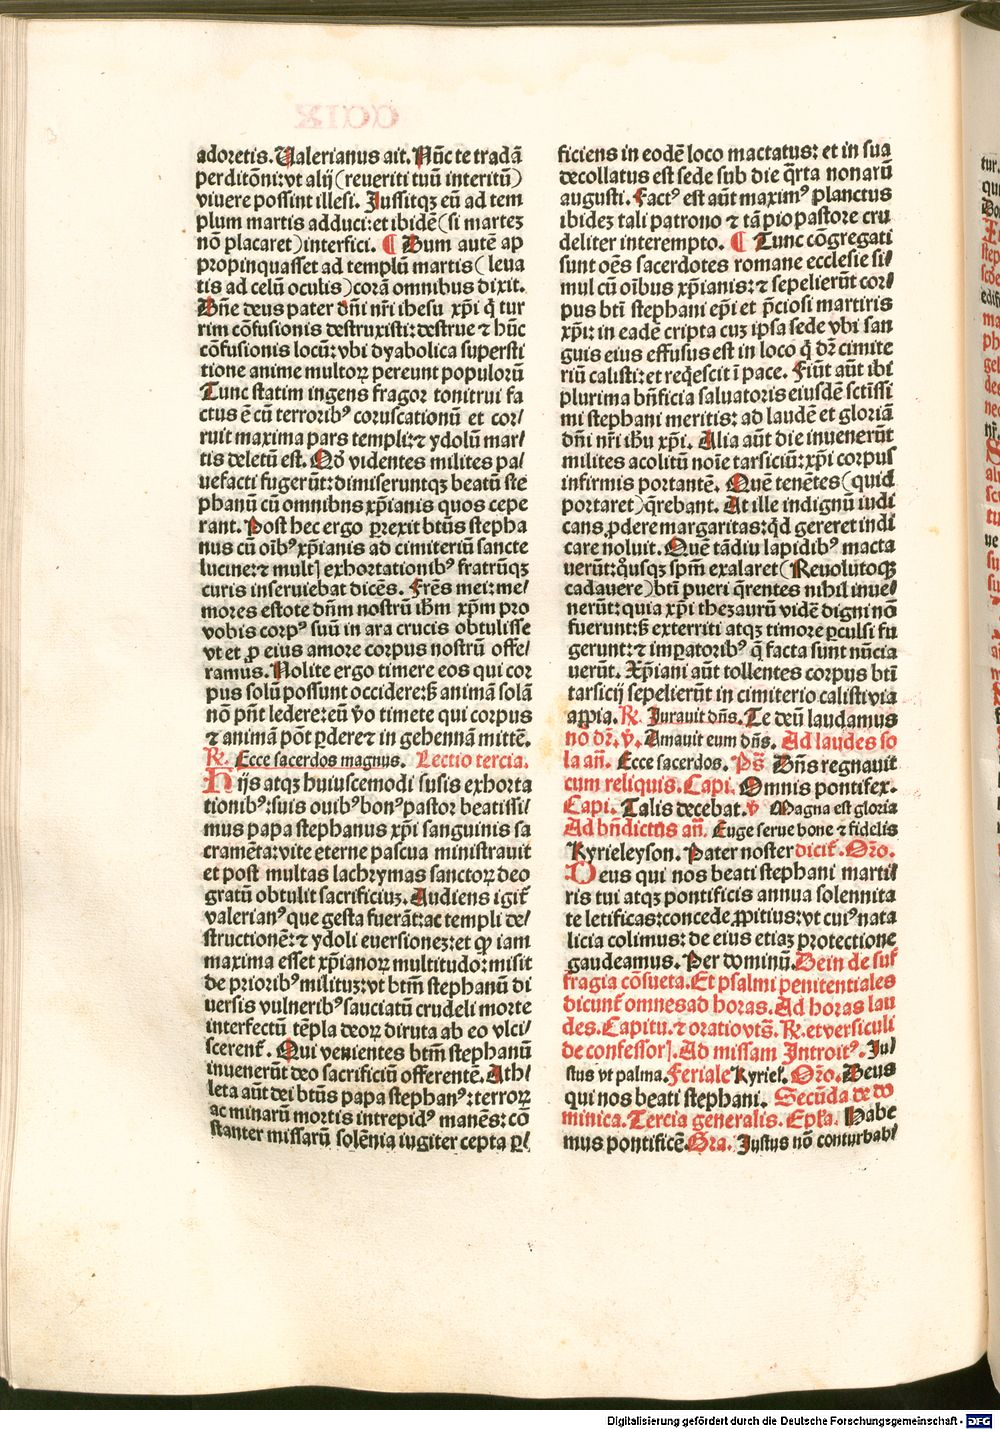 adoretis. Valerianus ait. Nūc te tradā
perditōni: vt alij (reueriti tuū interitū)
viuere possint illesi. Jussitqꝫ eū ad tem
plum martis adduci: et ibidē (si martez
nō placaret) interfici. ¶ Dum autē ap
propinquasset ad templū martis (leua
tis ad celū oculis) corā omnibus dixit.
Dn̄e deus pater dn̄i nr̄i ihesu xp̄i q̄ tur
rim cōfusionis destruxisti: destrue ⁊ hūc
cōfusionis locū: vbi dyabolica supersti
tione anime multoꝝ pereunt populorū
Tunc statim ingens fragor tonitrui fa
ctus ē cū terroribꝰ coruscationū et cor/
ruit maxima pars templi: ⁊ ydolū mar/
tis deletū est. Qd̄ videntes milites pa/
uefacti fugerūt: dimiseruntqꝫ beatū ste
phanū cū omnibns xp̄ianis quos cepe
rant. Post hec ergo ꝑrexit btūs stepha
nus cū oībꝰ xp̄ianis ad cimiteriū sancte
lucine: ⁊ multꝭ exhortationibꝰ fratrūqꝫ
curis inseruiebat dicēs. Frēs mei: me/
mores estote dn̄m nostrū ihm̄ xp̄m pro
vobis corpꝰ suū in ara crucis obtulisse
vt et ꝓ eius amore corpus nostrū offe/
ramus. Nolite ergo timere eos qui cor
pus solū possunt occidere: s̄ animā solā
nō pn̄t ledere: eū v̄o timete qui corpus
⁊ animā pōt ꝑdere ⁊ in gehennā mittē.
℟. Ecce sacerdos magnus. Lectio tercia.
Hijs atqꝫ huiuscemodi susis exhorta
tionibꝰ: suis ouibꝰ bonꝰ pastor beatissi/
mus papa stephanus xp̄i sanguinis sa
cramēta: vite eterne pascua ministrauit
et post multas lachrymas sanctoꝝ deo
gratū obtulit sacrificiuꝫ. Audiens igit̄
valerianꝰ que gesta fuerāt: ac templi de/
structionē: ⁊ ydoli euersionez: et ꝙ iam
maxima esset xp̄ianoꝝ multitudo: misit
de prioribꝰ militus: vt btm̄ stephanū di
uersis vulneribꝰ sauciatū crudeli morte
interfectū tēpla deoꝝ diruta ab eo vlci/
scerent̄. Qui venientes btm̄ stephanū
inuenerūt deo sacrificiū offerentē. Ath/
leta aūt dei btūs papa stephanꝰ: terroꝝ
ac minarū mortis intrepidꝰ manēs: cō
stanter missarū solēnia iugiter cepta ꝑ/
ficiens in eodē loco mactatus: et in sua
decollatus est sede sub die q̄rta nonarū
augusti. Factꝰ est aūt maximꝰ planctus
ibidez tali patrono ⁊ tā pio pastore cru
deliter interempto. ¶ Tunc cōgregati
sunt oēs sacerdotes romane ecclesie si/
mul cū oībus xp̄ianis: ⁊ sepelierūt cor/
pus btī stephani ep̄i et p̄ciosi martiris
xp̄i: in eadē cripta cuꝫ ipsa sede vbi san
guis eius effusus est in loco q̄ dr̄ cimite
riū calisti: et reqēscit ī pace. Fiūt aūt ibi
plurima bn̄ficia saluatoris eiusdē sctīssi
mi stephani meritis: ad laudē et gloriā
dn̄i nr̄i ihū xp̄i. Alia aūt die inuenerūt
milites acolitū noīe tarsiciū: xp̄i corpus
infirmis portantē. Quē tenētes (quid
portaret) q̄rebant. At ille indignū iudi
cans ꝓdere margaritas: qd̄ gereret indi
care noluit. Quē tādiu lapidibꝰ macta
uerūt: qͦusqꝫ spm̄ exalaret (Reuolutoqꝫ
cadauere) btī pueri q̄rentes nihil inue/
nerūt: quia xp̄i thezaurū vidē digni nō
fuerunt: s̄ exterriti atqꝫ timore ꝑculsi fu
gerunt: ⁊ imꝑatoribꝰ q̄ facta sunt nūcia
uerūt. Xp̄iani aūt tollentes corpus btī
tarsicij sepelierūt in cimiterio calisti via
appia. ℟. Jurauit dn̄s. Te deū laudamus
nō dr̄. ℣. Amauit eum dn̄s. Ad laudes so
la añ. Ecce sacerdos. Ps̄ Dn̄s regnauit
cum reliquis. Capi. Omnis pontifex.
Capi. Talis decebat. ℣ Magna est gloria
Ad bn̄dictus añ. Euge serue bone ⁊ fidelis
Kyrieleyson. Pater noster dicit̄. Oro.
Deus qui nos beati stephani marti/
ris tui atqꝫ pontificis annua solennita
te letificas: concede ꝓpitius: vt cuiꝰ nata
licia colimus: de eius etiaꝫ protectione
gaudeamus. Per dominū. Dein de suf
fragia cōsueta. Et psalmi penitentiales
dicunt̄ omnes ad horas. Ad horas lau
des. Capitu. ⁊ oratio vts̄. ℟. et versiculi
de confessorꝭ. Ad missam Introitꝰ. Ju/
stus vt palma. Feriale Kyriel̄. Oro. Deus
qui nos beati stephani. Secūda de do
minica. Tercia generalis. Epl̄a. Habe
mus pontificē. Gra. Justus nō conturbabi/
Digitalisierung gefördert durch die Deutsche Forschungsgemeinschaft - DFG